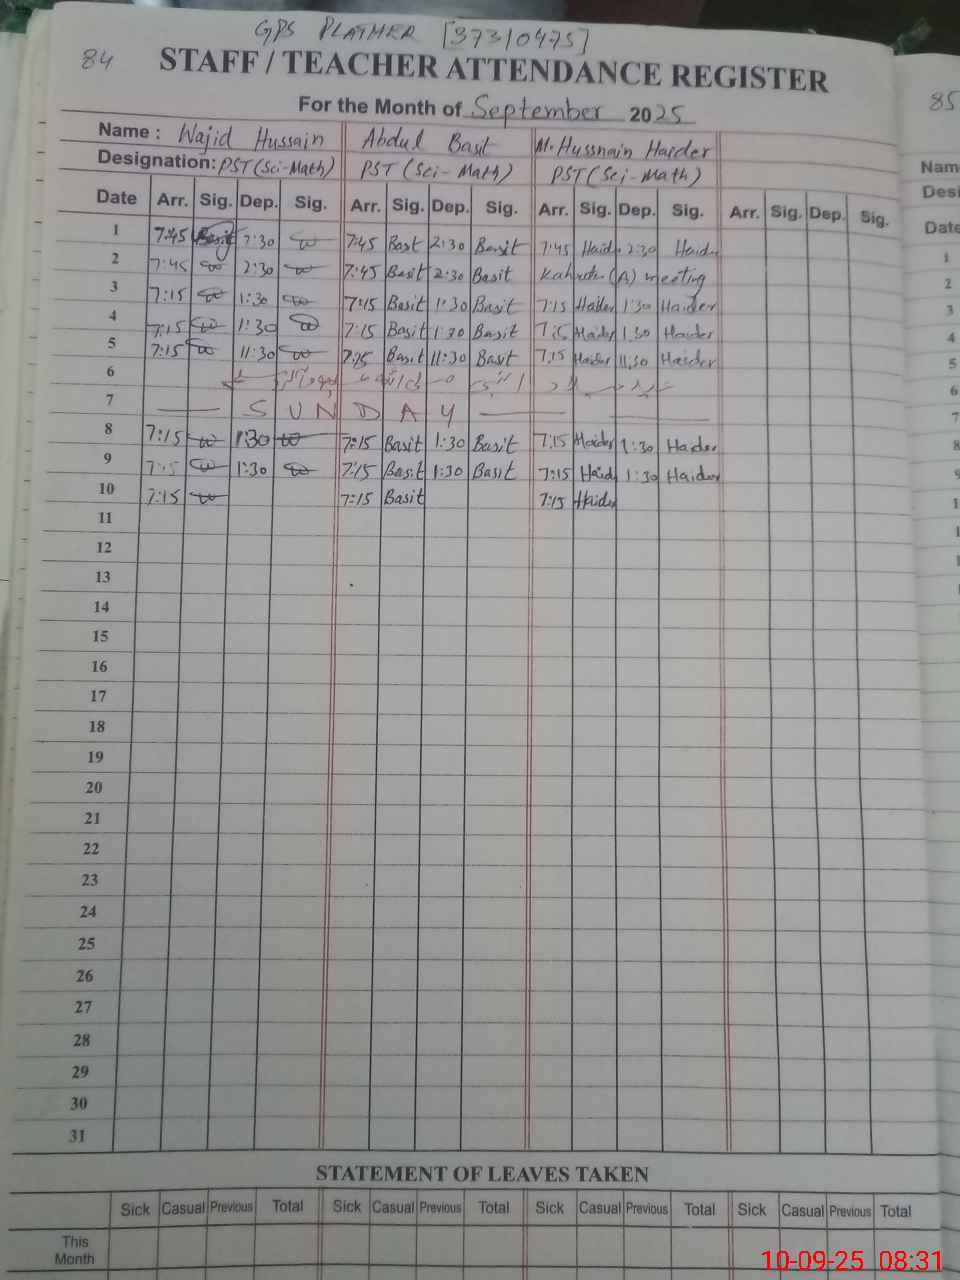 GPS PLATHER [37310475]
84
STAFF / TEACHER ATTENDANCE REGISTER
85
For the Month of September 2025
Name : Wajid Hussain Abdul Basit M. Hussnain Haider
Designation: PST (Sci-Math) PST (Sci-Math) PST (Sci-Math)
Nam
Desi
Date Arr. Sig. Dep. Sig. Arr. Sig. Dep. Sig. Arr. Sig. Dep. Sig. Arr. Sig. Dep. Sig. Date
1 7:45 2:30 7:45 Basit 2:30 Basit 7:45 Haider 2:30 Haider 1
2 7:45 2:30 7:45 Basit 2:30 Basit (A) meeting 2
3 7:15 1:30 7:15 Basit 1:30 Basit 7:15 Haider 1:30 Haider 3
4 7:15 1:30 7:15 Basit 1:30 Basit 7:15 Haider 1:30 Haider 4
5 7:15 11:30 7:15 Basit 11:30 Basit 7:15 Haider 11:30 Haider 5
6 6
7 SUNDAY 7
8 7:15 1:30 7:15 Basit 1:30 Basit 7:15 Haider 1:30 Haider 8
9 7:15 1:30 7:15 Basit 1:30 Basit 7:15 Haider 1:30 Haider 9
10 7:15 7:15 Basit 7:15 Haider
11
12
13
14
15
16
17
18
19
20
21
22
23
24
25
26
27
28
29
30
31
STATEMENT OF LEAVES TAKEN
Sick Casual Previous Total Sick Casual Previous Total Sick Casual Previous Total Sick Casual Previous Total
This
Month
10-09-25 08:31